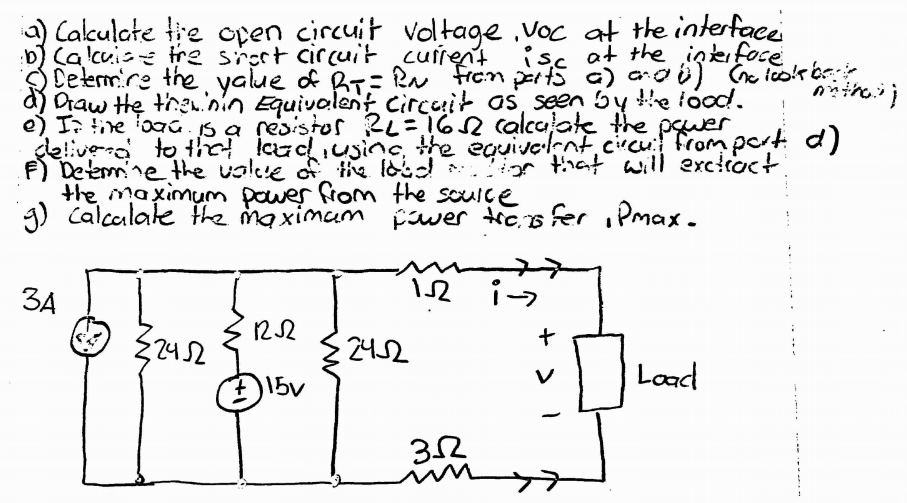 a) Calculate the open circuit voltage, Voc at the interface
b) Calculate the short circuit current isc at the interface
c) Determine the value of RT = RN from parts a) and b) (no look back method)
d) Draw the thevinin Equivalent Circuit as seen by the load.
e) If the load is a resistor RL = 16Ω calculate the power
delivered to that load, using the equivalent circuit from part d)
F) Determine the value of the load that will exctract
the maximum power from the source
g) Calculate the maximum power transfer, Pmax.
1Ω i→
3A
24Ω 12Ω 24Ω
+
15V
v Load
−
3Ω